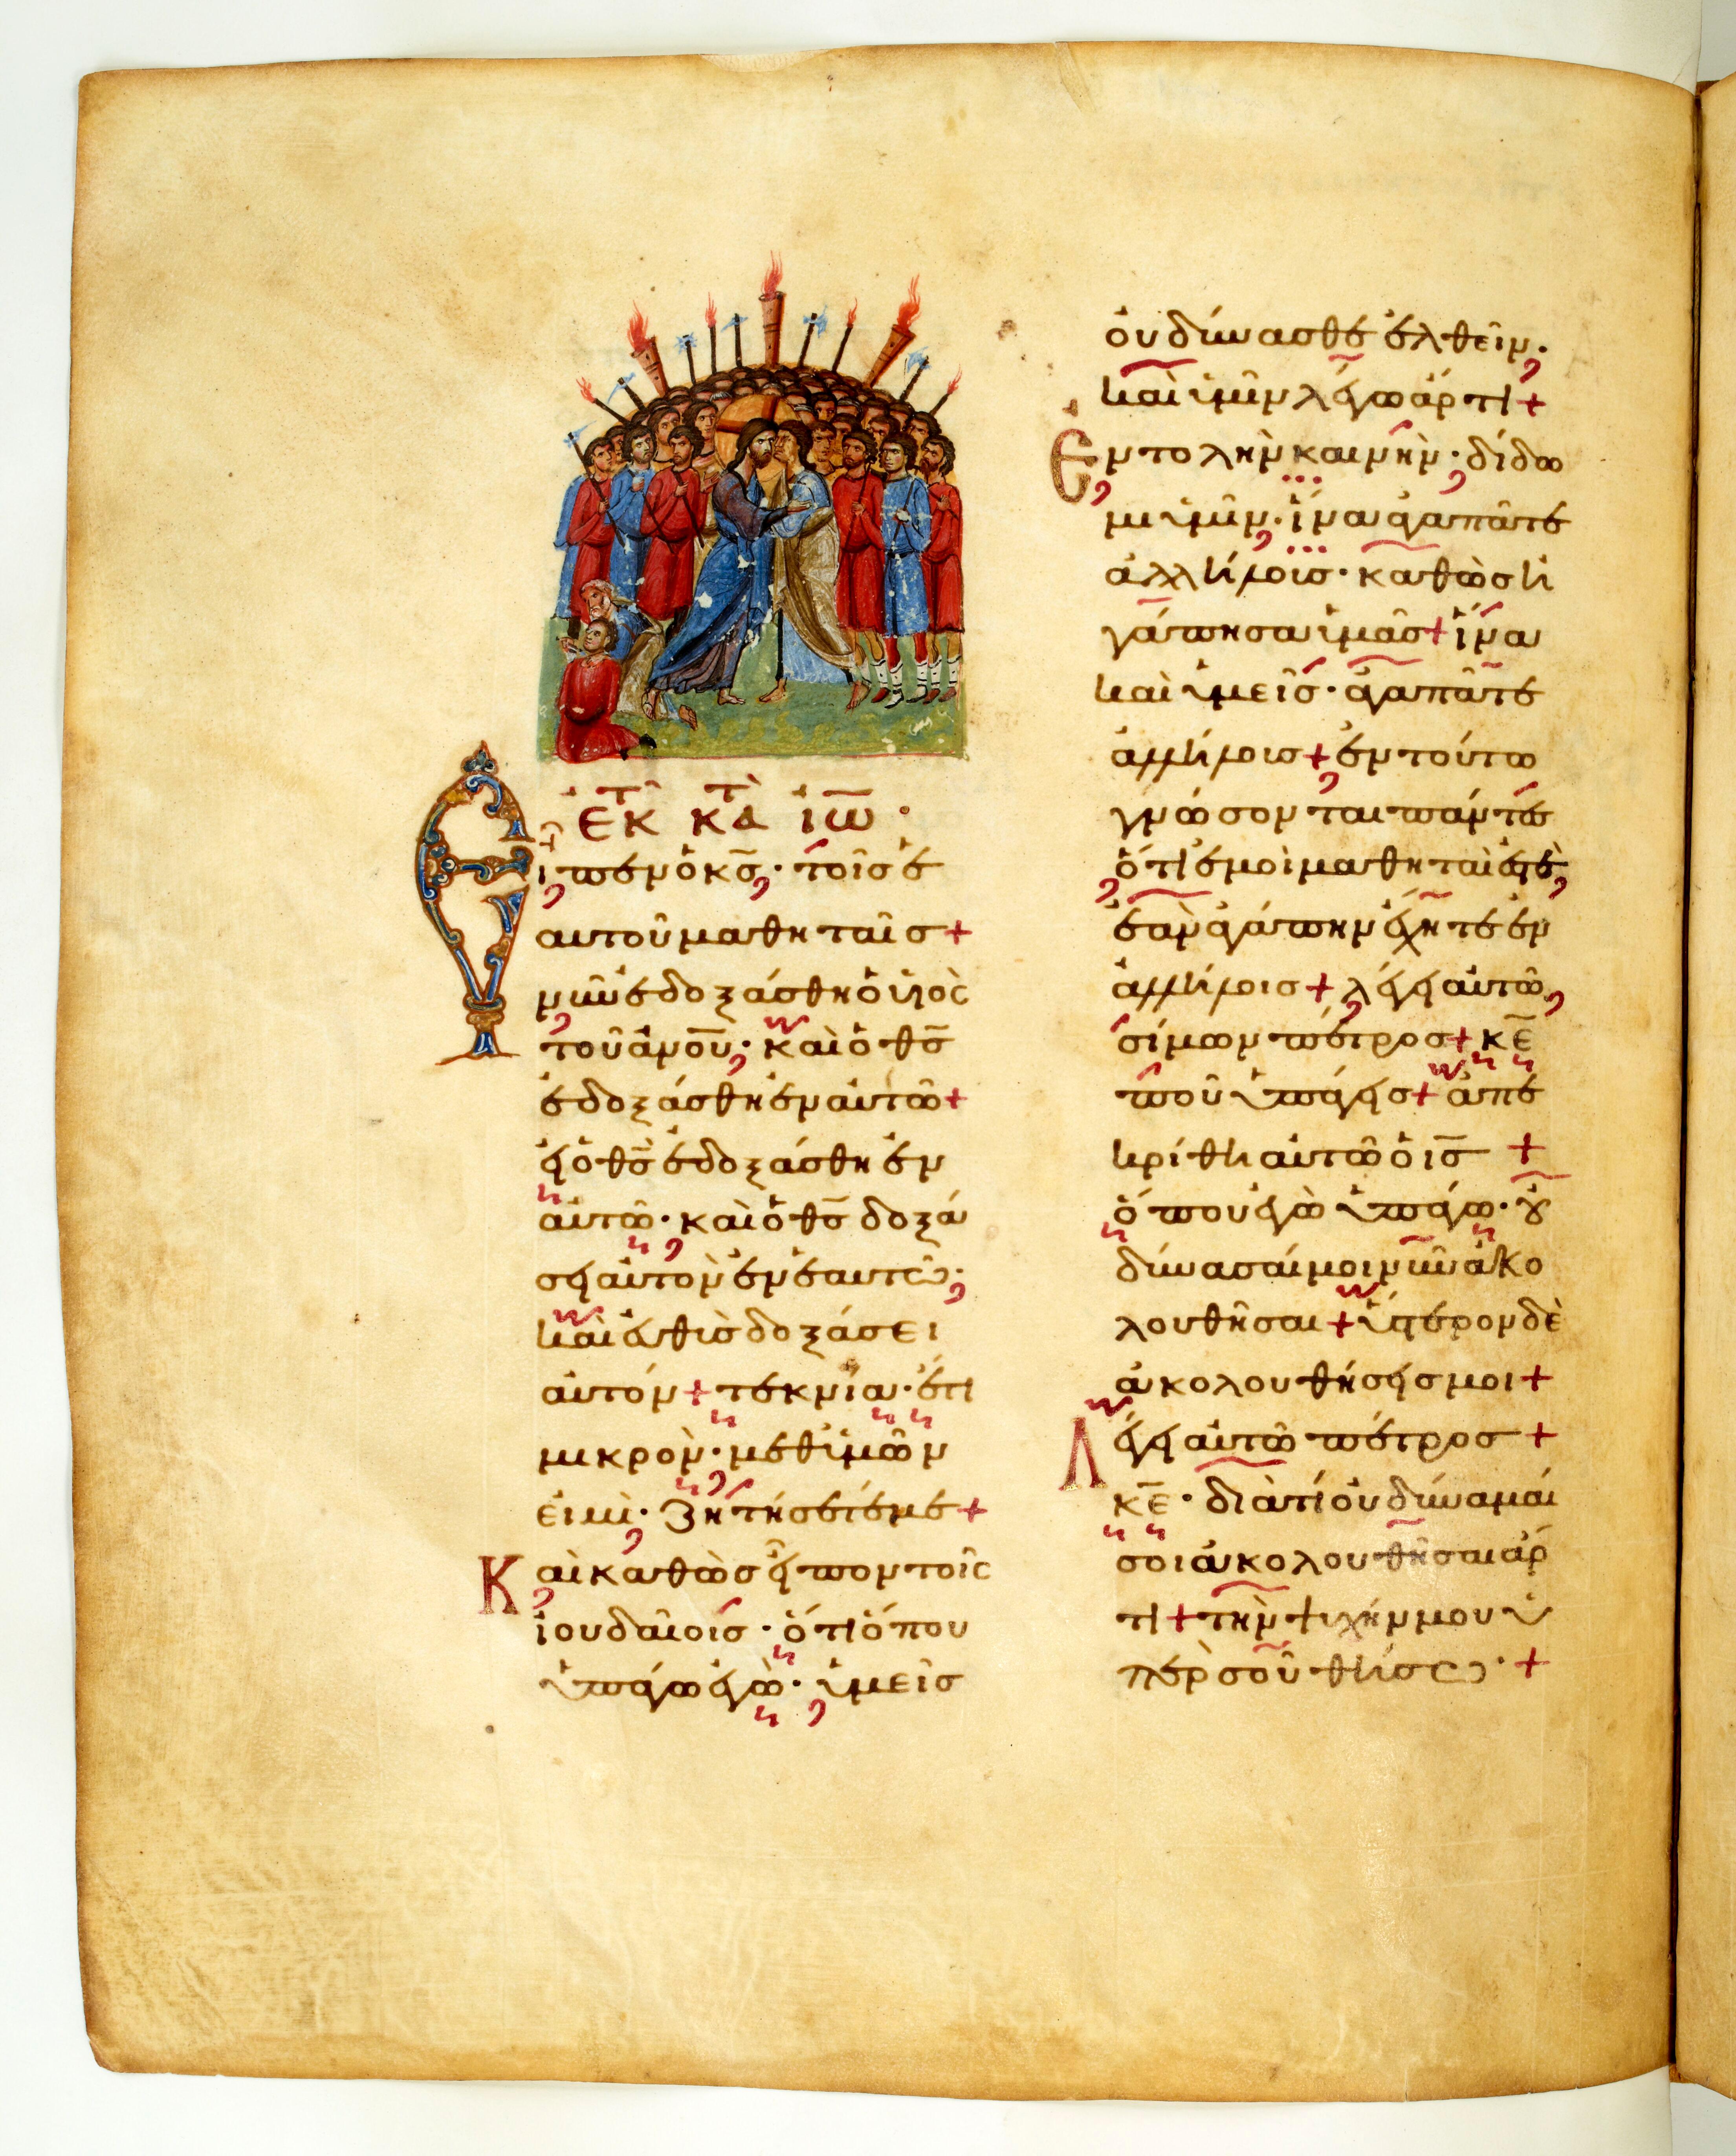 ἐκ τοῦ κατὰ ἰω ·
ἶπεν ὁ κς̄ · τοῖσ ἑ
αυτοῦ μαθηταῖσ +
νῦν ἐδοξάσθη ὁ ὑιὸς
τοῦ ἀνο̄υ · καὶ ὁ θς̄
ἐδοξάσθη ἐν αὐτῶ +
εἰ ὁ θς̄ ἐδοξάσθη ἐν
αὐτῶ · καὶ ὁ θς̄ δοξά
σει αὐτὸν ἐν ἑαυτῶ ·
καὶ ἐυθὺσ δοξάσει
αὐτόν + τεκνία · ἔτι
μικρὸν · μεθ ὑμῶν
εἰμὶ · ζητήσετέ με +
Καὶ καθὼσ εἶπον τοῖς
ἰουδαίοισ · ὅτι ὅπου
ὑπάγω ἐγὼ · ὑμεῖσ
ὀυ δύνασθε ἐλθεῖν ·
καὶ ὑμῖν λέγω ἄρτι +
Ἐντολὴν καινὴν · δίδω
μι ὑμῖν · ἵνα ἀγαπᾶτε
ἀλλήλοισ · καθὼσ ἠ
γάπησα ὑμᾶσ + ἵνα
καὶ ὑμεῖσ · ἀγαπᾶτε
ἀλλήλοισ + ἐν τούτω
γνώσονται πάντεσ
ὅτι ἐμοὶ μαθηταὶ ἐστὲ
ἐὰν ἀγάπην ἔχητε ἐν
ἀλλήλοισ + λέγει αὐτῶ
σίμων πέτροσ + κε̄
ποῦ ὑπάγεισ + ἀπε
κρίθη αὐτῶ ὁ ις̄ +
ὅπου ἐγὼ ὑπάγω · ȣ̓
δύνασαί μοι νῦν ἀκο
λουθῆσαι + ὕστερον δὲ
ἀκολουθήσεισ μοι +
Λέγει αὐτῶ πέτροσ +
κε̄ · διατί ὀυ δύναμαί
σοι ἀκολουθῆσαι ἄρ
τι + τὴν ψυχήν μου ὑ
πὲρ σοῦ θήσω · +